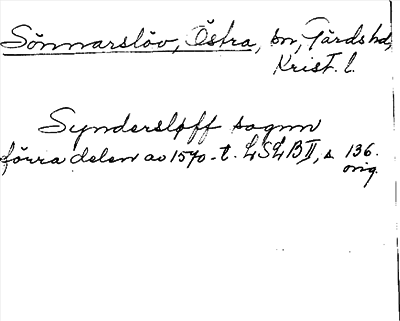 Sönnarslöv, Östra, sn, Gärds hd,
Krist. l.
Syndersløff sognn
förra delen av 1570-t. LSLB II, s 136.
orig.